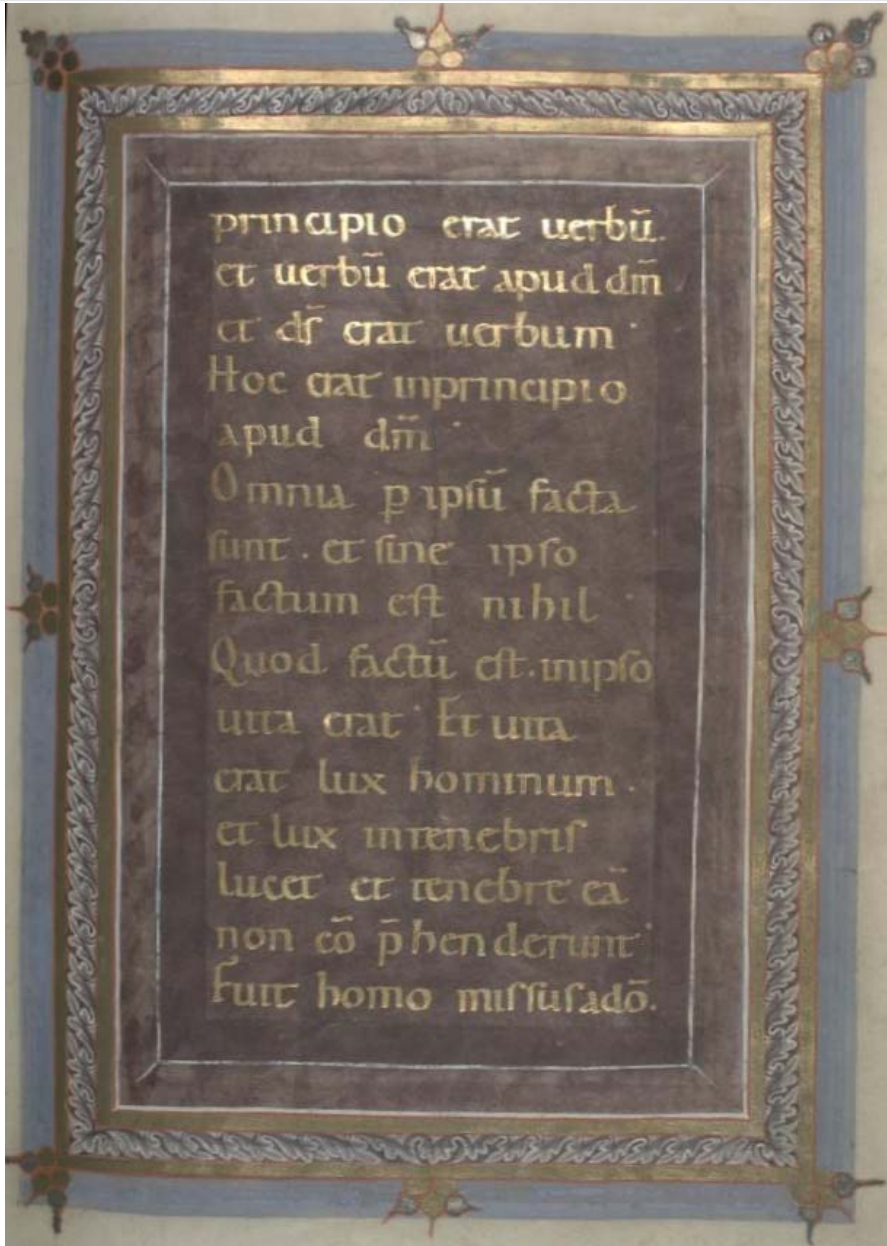 principio erat uerbū.
et uerbū erat apud dm̄
et ds̄ erat uerbum ·
Hoc erat inprincipio
apud dm̄ ·
Omnia ꝑ ipsū facta
sunt · et sine ipso
factum est nihil ·
Quod factū est · inipso
uita erat · Et uita
erat lux hominum ·
et lux intenebris
lucet et tenebre eā
non cō p̄henderunt ·
Fuit homo missus adō.